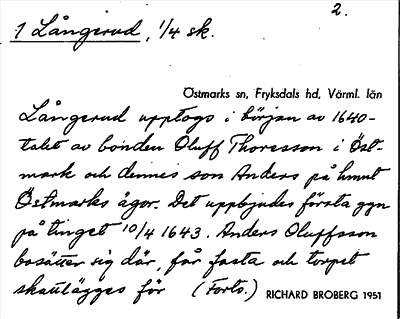 2.
1 Långerud, 1/4 sk.
Östmarks sn, Fryksdals hd, Värml. län
Långerud upptogs i början av 1640-
talet av bonden Oluff Thoresson i Öst-
mark och dennes son Anders på hmnt
Östmarks ägor. Det uppbjudes första ggn
på tinget 10/4 1643. Anders Oluffsson
bosätter sig där, får fasta och torpet
skattlägges för (Forts.) RICHARD BROBERG 1951